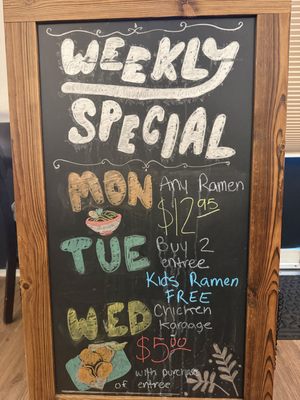 WEEKLY
SPECIAL
MON Any Ramen
$12.95
TUE Buy 2
entree
Kids Ramen
FREE
WED Chicken
Karaage
$5.00
with purchase
of entree